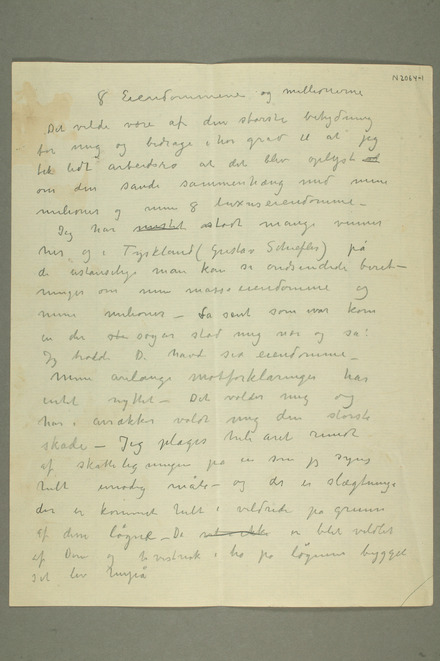 N 2064-1
8 Eiendommene og millionerne
Det vilde være af den største betydning
for mig og bidrage i høi grad til at jeg
fik lidt arbeidsro at det blev oplyst
om den sande sammenhæng med mine
milioner og mine 8 luxuseiendomme –
Jeg har mistet stadt mange venner
her og i Tyskland (Gustav Schiefler) på
de ustanselige man kan se
om mine masse eiendomme og
mine milioner – Sa sent som ivår kom
en der sto mig nær og sa:
Jg trodde D. havde sex eiendomme –
Mine motforklaringer har
intet nyttet – Det volder mig og
har i årrækker voldt mig den største
skade – Jeg plages hele året rundt
af skatteligningen på en som jg synes
helt måte – og der er slægtninge
der er kommet helt i vildrede på grunn
af den løgne – De er blit voldet
af Dem og i ha på løgnene bygget
sit liv